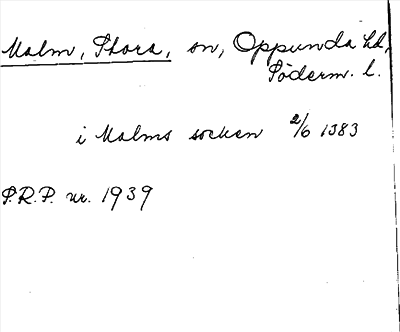 Malm, Stora, sn, Oppunda hd,
Söderm. l.
i Malms socken 2/6 1383
S.R.P. nr. 1939